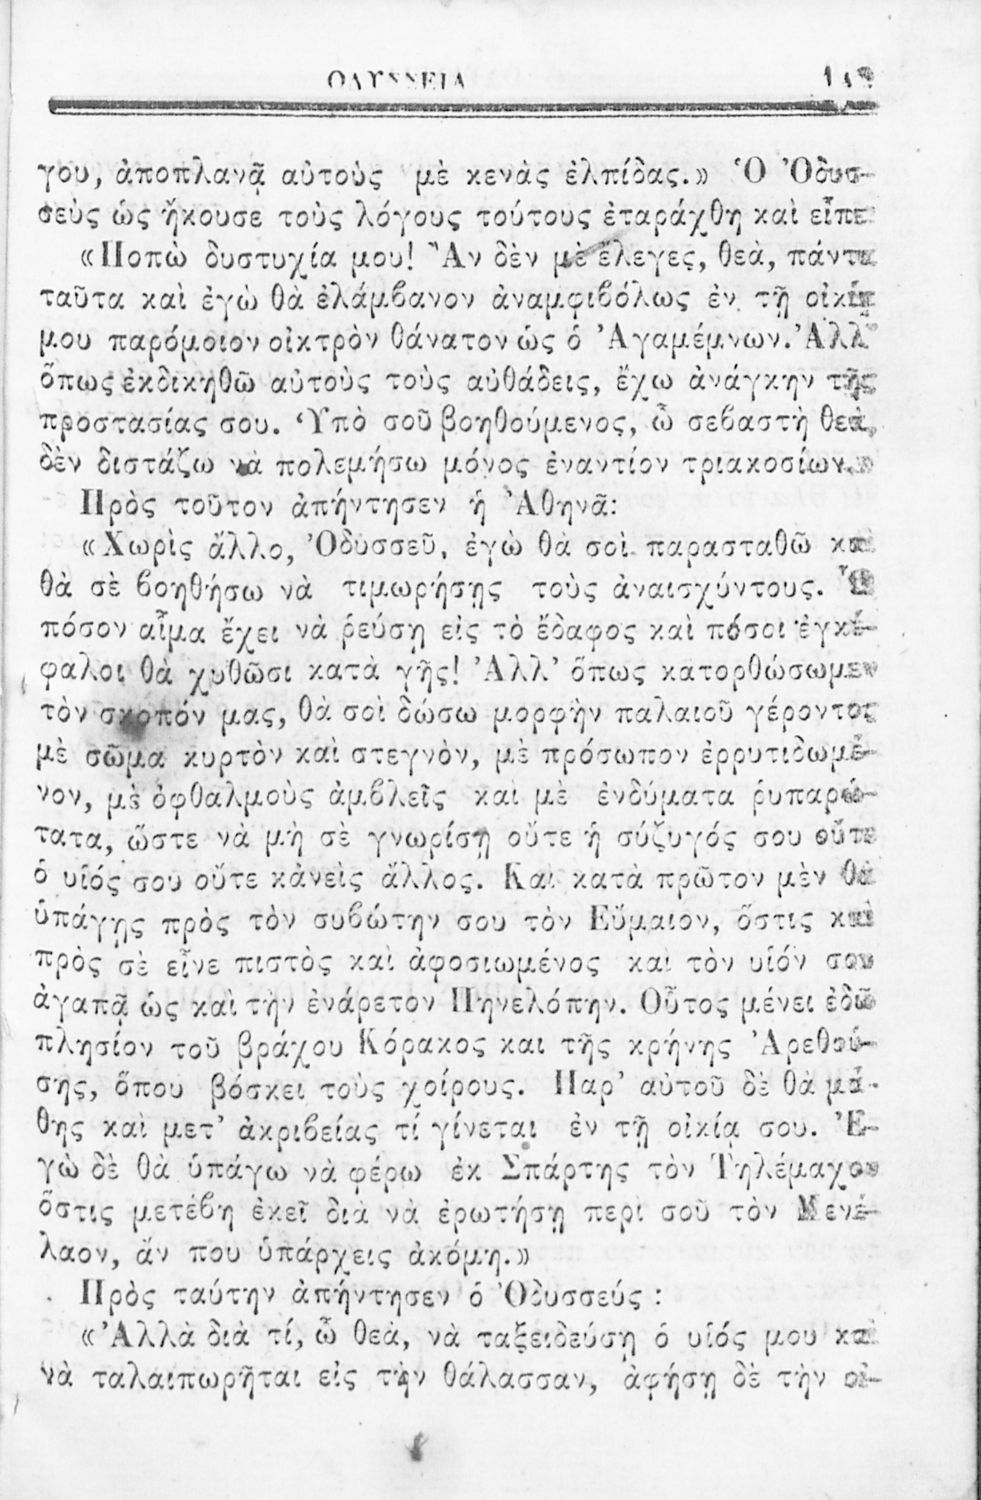 ΟΔΥΣΣΕΙΑ
γου, ἀποπλανᾷ αὐτοὺς μὲ κενὰς ἐλπίδας.» Ὁ Ὀδυσ-
σεὺς ὡς ἤκουσε τοὺς λόγους τούτους ἐταράχθη καὶ εἶπε·
«Ποπὼ δυστυχία μου! Ἂν δὲν μὲ ἔλεγες, θεὰ, πάντα
ταῦτα καὶ ἐγὼ θὰ ἐλάμβανον ἀναμφιβόλως ἐν τῇ οἰκίᾳ
μου παρόμοιον οἰκτρὸν θάνατον ὡς ὁ Ἀγαμέμνων. Ἀλλ'
ὅπως ἐκδικηθῶ αὐτοὺς τοὺς αὐθάδεις, ἔχω ἀνάγκην τῆς
προστασίας σου. Ὑπὸ σοῦ βοηθούμενος, ὦ σεβαστὴ θεὰ,
δὲν διστάζω νὰ πολεμήσω μόνος ἐναντίον τριακοσίων.»
Πρὸς τοῦτον ἀπήντησεν ἡ Ἀθηνᾶ:
«Χωρὶς ἄλλο, Ὀδυσσεῦ, ἐγὼ θὰ σοὶ παρασταθῶ καὶ
θὰ σὲ βοηθήσω νὰ τιμωρήσῃς τοὺς ἀναισχύντους. Ὢ
πόσον αἷμα ἔχει νὰ ῥεύσῃ εἰς τὸ ἔδαφος καὶ πόσοι ἐγκέ-
φαλοι θὰ χυθῶσι κατὰ γῆς! Ἀλλ' ὅπως κατορθώσωμεν
τὸν σκοπόν μας, θὰ σοὶ δώσω μορφὴν παλαιοῦ γέροντος
μὲ σῶμα κυρτὸν καὶ στεγνὸν, μὲ πρόσωπον ἐρρυτιδωμέ-
νον, μὲ ὀφθαλμοὺς ἀμβλεῖς καὶ μὲ ἐνδύματα ῥυπαρώ-
τατα, ὥστε νὰ μὴ σὲ γνωρίσῃ οὔτε ἡ σύζυγός σου οὔτε
ὁ υἱός σου οὔτε κἀνεὶς ἄλλος. Καὶ κατὰ πρῶτον μὲν θὰ
ὑπάγῃς πρὸς τὸν συβώτην σου τὸν Εὔμαιον, ὅστις καὶ
πρὸς σὲ εἶνε πιστὸς καὶ ἀφοσιωμένος καὶ τὸν υἱόν σου
ἀγαπᾷ ὡς καὶ τὴν ἐνάρετον Πηνελόπην. Οὗτος μένει ἐδῶ
πλησίον τοῦ βράχου Κόρακος και τῆς κρήνης Ἀρεθού-
σης, ὅπου βόσκει τοὺς χοίρους. Παρ' αὐτοῦ δὲ θὰ μά-
θῃς καὶ μετ' ἀκριβείας τί γίνεται ἐν τῇ οἰκίᾳ σου. Ἐ-
γὼ δὲ θὰ ὑπάγω νὰ φέρω ἐκ Σπάρτης τὸν Τηλέμαχον
ὅστις μετέβη ἐκεῖ διὰ νὰ ἐρωτήσῃ περὶ σοῦ τὸν Μενέ-
λαον, ἄν που ὑπάρχεις ἀκόμη.»
Πρὸς ταύτην ἀπήντησεν ὁ Ὀδυσσεύς :
«Ἀλλὰ διὰ τί, ὦ θεὰ, νὰ ταξειδεύσῃ ὁ υἱός μου καὶ
νὰ ταλαιπωρῆται εἰς τὴν θάλασσαν, ἀφήσῃ δὲ τὴν οἰ-